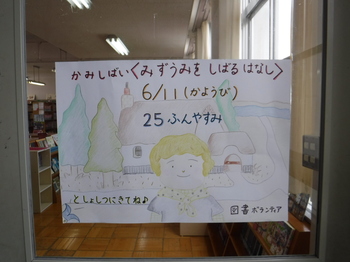 かみしばい〈みずうみを しばる はなし〉
6/11(かようび)
25ふんやすみ
としょしつにきてね♪
図書ボランティア